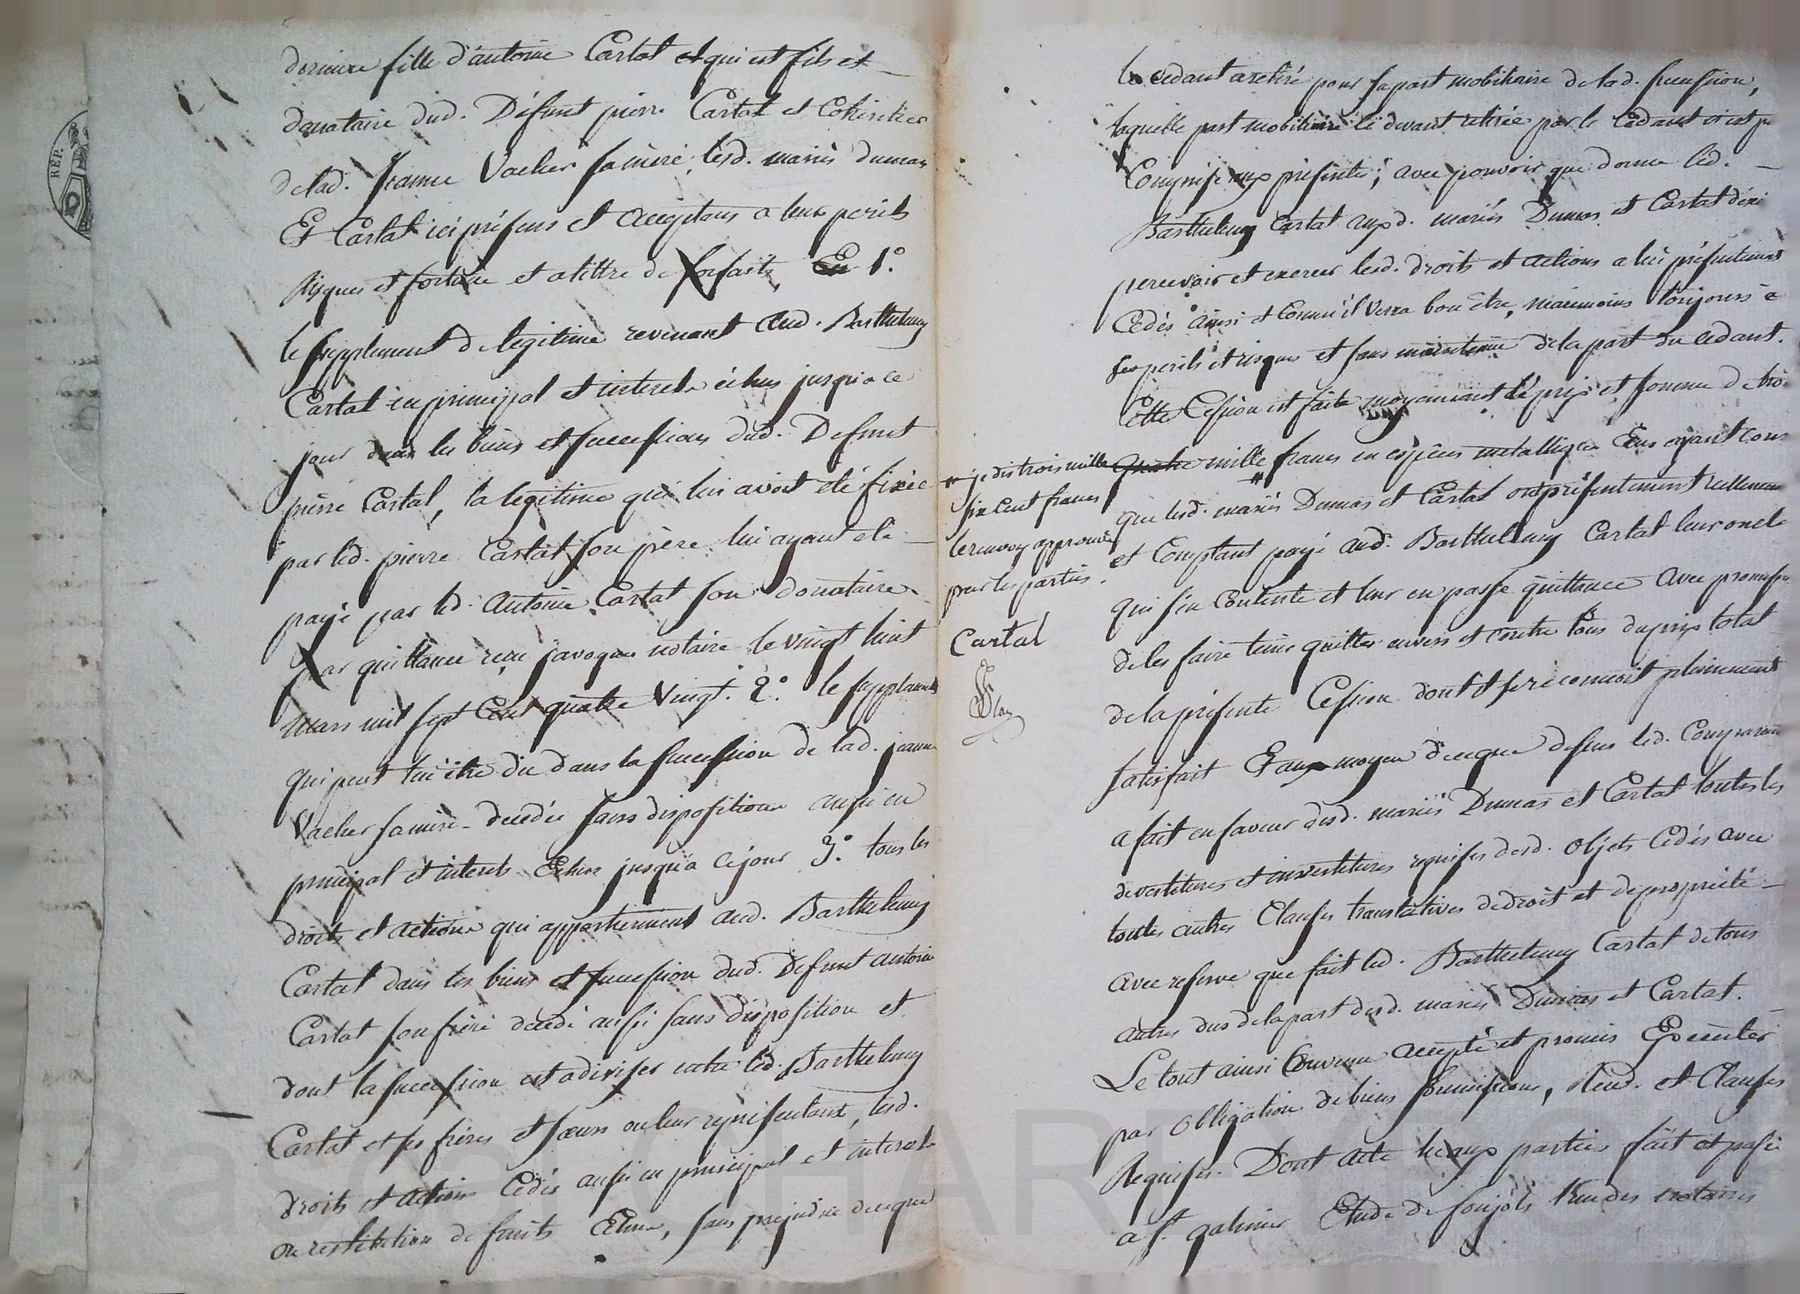 derniere fille d'antoine Cartal et qui est fils et
donataire dud. Défunt pierre Cartal et Cohéritier
delad. Jeanne Vacher sa mère, lesd. mariés dumas
Et Cartal ici présens et acceptans a leur perils
risques et fortune et a tittre de forfait, En 1.°
le supplement de legitime revenant aud. Barthelemy
Cartal en principal et interets échus jusqu'a ce
jour dans les biens et successions dud. Defunt
pierre Cartal, la legitime qui lui avoit été fixée
par led. pierre Cartal son père lui ayant eté
payé par led. Antoine Cartal son donataire
par quittance reçu javogues notaire le vingt huit
mars mil sept Cent quatre Vingt. 2.° le supplement
qui peut lui être du dans la succession de lad. jeanne
Vacher sa mère decedée sans disposition aussi en
principal et interets Echus jusqu'a ce jour 3.° tous les
droits et actions qui appartiennent aud. Barthelemy
Cartal dans les biens et succession dud. Defunt antoine
Cartal son frère decedé aussi sans disposition et
dont la succession est a diviser entre led. Barthelemy
Cartal et ses frères et sœurs ou leur representant, lesd.
droits et actions Cédés aussi en principal et interets
ou restitution de fruits Echus, sans prejudice de ce que
le cedant a retiré pour sa part mobiliaire de lad. succession,
laquelle part mobiliaire ci devant retirée par le Cedant n'est p
Comprise aux présentes; avec pouvoir que donne led.
Barthelemy Cartal auxd. mariés Dumas et Cartal d'exi
percevoir et exercer lesd. droits et actions a lui présentement
Cedés ainsi et Comme il Verra bon être, néanmoins toujours a
ses perils et risques et sans maintenue de la part du cedant.
Cette Cession est faite moyennant le prix et somme de trois
quatre mille francs en espèces metalliques Ens ayant cours
que lesd. mariés Dumas et Cartal ont présentement reellement
et Comptant payé aud. Barthelemy Cartal leur oncle
qui s'en Contente et leur en passe quittance avec promesse
de les faire tenir quittes envers et contre tous du prix total
de la présente Cession dont il se reconnoit pleinement
satisfait Et au moyen de ce que dessus led. Comparant
a fait en faveur desd. mariés Dumas et Cartal toutes les
devestitures et investitures requises desd. objets Cédés avec
toutes autres Clauses translatives de droit et de propriété
avec reserve que fait led. Barthelemy Cartal de tous
autres dus de la part desd. mariés Dumas et Cartal.
Le tout ainsi Convenu accepté et promis Exécuter
par obligation de biens soumissions, Rend. et Clauses
Requises. Dont acte lu aux parties fait et passé
a S.t galmier Etude de soujols l'un des notaires
je dis trois mille
six Cent francs
le renvoy approuvé
par les parties.
Cartal